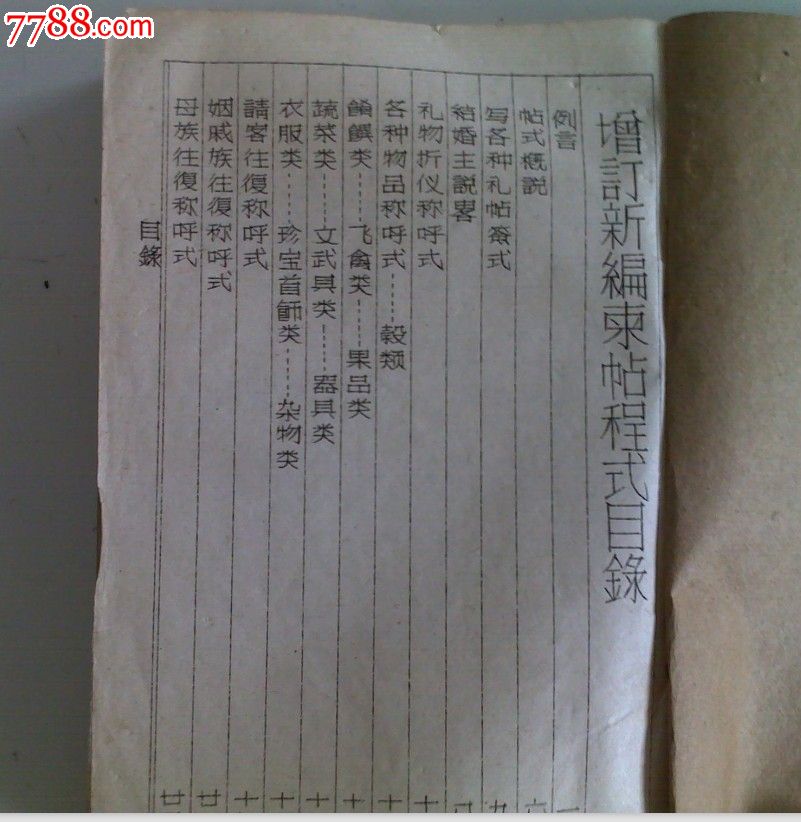 7788.com
增訂新編柬帖程式目錄
例言 一
帖式概説 六
写各种礼帖套式 九
結婚主説畧 八
礼物折仪称呼式 十
各种物品称呼式……穀类 十
餚饌类……飞禽类……果品类 十
蔬菜类……文武具类……器具类 十
衣服类……珍宝首飾类……杂物类 十
請客往復称呼式 十
姻戚族往復称呼式 廿
母族往復称呼式 廿
目錄